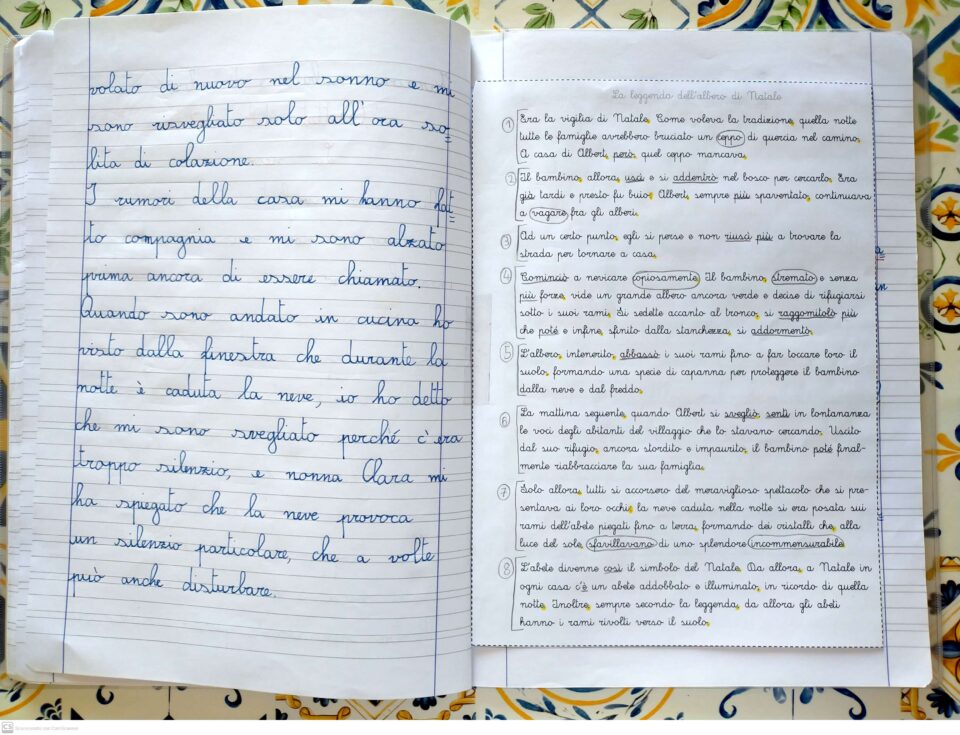 volato di nuovo nel sonno e mi
sono risvegliato solo all'ora so
lita di colazione.
I rumori della casa mi hanno fat
to compagnia e mi sono alzato
prima ancora di essere chiamato.
Quando sono andato in cucina ho
visto dalla finestra che durante la
notte è caduta la neve, io ho detto
che mi sono svegliato perché c'era
troppo silenzio, e nonna Clara mi
ha spiegato che la neve provoca
un silenzio particolare, che a volte
può anche disturbare.
La leggenda dell'albero di Natale
1 Era la vigilia di Natale. Come voleva la tradizione, quella notte
tutte le famiglie avrebbero bruciato un ceppo di quercia nel camino.
A casa di Albert, però, quel ceppo mancava.
2 Il bambino, allora, uscì e si addentrò nel bosco per cercarlo. Era
già tardi e presto fu buio. Albert, sempre più spaventato, continuava
a vagare fra gli alberi.
3 Ad un certo punto, egli si perse e non riuscì più a trovare la
strada per tornare a casa.
4 Cominciò a nevicare copiosamente. Il bambino, stremato e senza
più forze, vide un grande albero ancora verde e decise di rifugiarsi
sotto i suoi rami. Si sedette accanto al tronco, si raggomitolò più
che poté e infine, sfinito dalla stanchezza, si addormentò.
5 L'albero, intenerito, abbassò i suoi rami fino a far toccare loro il
suolo, formando una specie di capanna per proteggere il bambino
dalla neve e dal freddo.
6 La mattina seguente, quando Albert si svegliò, sentì in lontananza
le voci degli abitanti del villaggio che lo stavano cercando. Uscito
dal suo rifugio, ancora stordito e impaurito, il bambino poté final-
mente riabbracciare la sua famiglia.
7 Solo allora, tutti si accorsero del meraviglioso spettacolo che si pre-
sentava ai loro occhi: la neve caduta nella notte si era posata sui
rami dell'abete piegati fino a terra, formando dei cristalli che, alla
luce del sole, sfavillavano di uno splendore incommensurabile.
8 L'abete divenne così il simbolo del Natale. Da allora, a Natale in
ogni casa c'è un abete addobbato e illuminato, in ricordo di quella
notte. Inoltre, sempre secondo la leggenda, da allora gli abeti
hanno i rami rivolti verso il suolo.
CS Scansionato con CamScanner